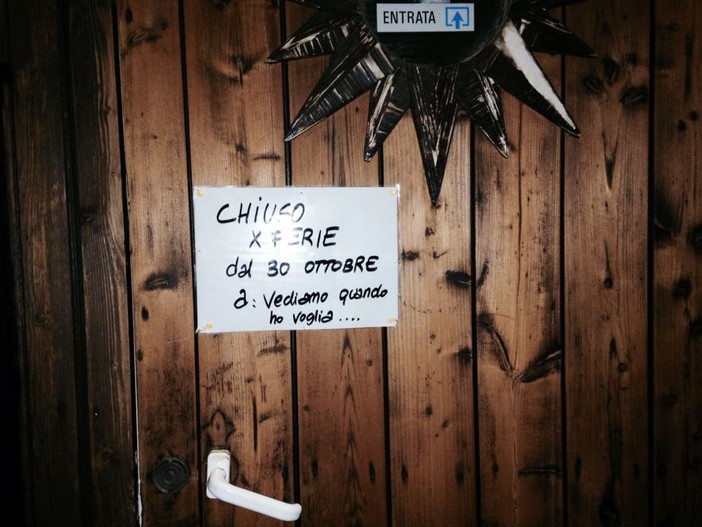 ENTRATA
CHIUSO
X FERIE
dal 30 OTTOBRE
a: Vediamo quando
ho voglia ....